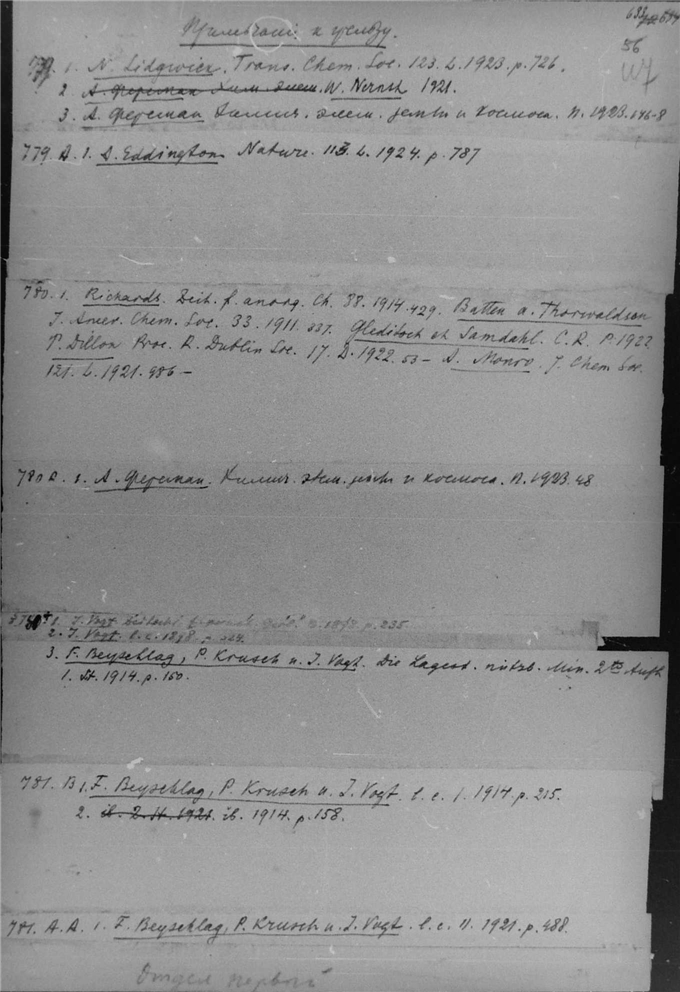 688
56
Примечанія к
779. 1. N. Sidgwick. Trans. Chem. Soc. 123. L. 1923. p. 726.
2 А. Ферсман Хим. элем. W. Nernst 1921.
3. А. Ферсман Химич. элем. земли и космоса. П. 1923. 146-8
779 A. 1. A. Eddington Nature. 113. L. 1924. p. 787
780. 1. Richards. Zeit. f. anorg. Ch. 88. 1914. 429. Batten a. Thorwaldson
J. Amer. Chem. Soc. 33. 1911. 337. Gleditsch et Samdahl. C. R. P. 1922
T. Dillon Proc. R. Dublin Soc. 17. D. 1922. 53 — A. Monro. J. Chem. Soc.
121. L. 1921. 986 —
780 a. 1. А. Ферсман. Химич. элем. земли и космоса. П. 1923. 48
1. J. Vogt. 235
2. J. Vogt. l. c. 1898. p.
3. F. Beyschlag, P. Krusch u. J. Vogt. Die Lagerst. nutzb. Min. 2te Aufl.
1. St. 1914. p. 160.
781. B 1. F. Beyschlag, P. Krusch u. J. Vogt. l. c. I. 1914. p. 215.
2. ib. 2. St. 1921. ib. 1914. p. 158.
781. A. A. 1. F. Beyschlag, P. Krusch u. J. Vogt. l. c. II. 1921. p. 488.
Отдел первый